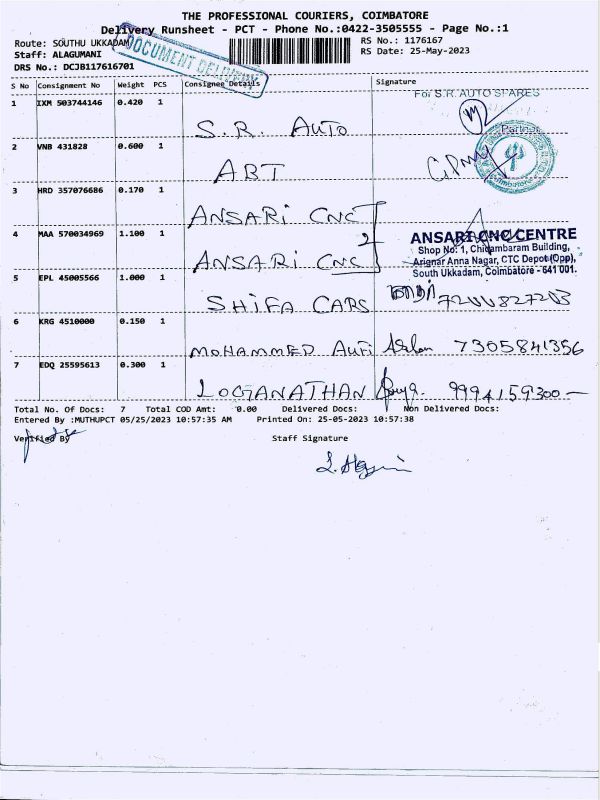 THE PROFESSIONAL COURIERS, COIMBATORE
Delivery Runsheet - PCT - Phone No.:0422-3505555 - Page No.:1
Route: SOUTHU UKKADAM
RS No.: 1176167
Staff: ALAGUMANI
RS Date: 25-May-2023
DRS No.: DCJB117616701
DOCUMENT DELIVERY
S No Consignment No Weight PCS Consignee Details Signature
For S.R. AUTO SPARES
1 IXM 503744146 0.420 1
S.R. AUTO
Partner
2 VNB 431828 0.600 1
ABT
3 HRD 357076686 0.170 1
ANSARI CNC
4 MAA 570034969 1.100 1
ANSARI CNC
2
ANSARI CNC CENTRE
Shop No: 1, Chidambaram Building,
Arignar Anna Nagar, CTC Depot (Opp),
South Ukkadam, Coimbatore - 641 001.
5 EPL 45005566 1.000 1
SHIFA CARS
7200827203
6 KRG 4510000 0.150 1
MOHAMMED 7305841356
7 EDQ 25595613 0.300 1
LOGANATHAN 9994159300
Total No. Of Docs: 7 Total COD Amt: 0.00 Delivered Docs: Non Delivered Docs:
Entered By :MUTHUPCT 05/25/2023 10:57:35 AM Printed On: 25-05-2023 10:57:38
Verified By Staff Signature